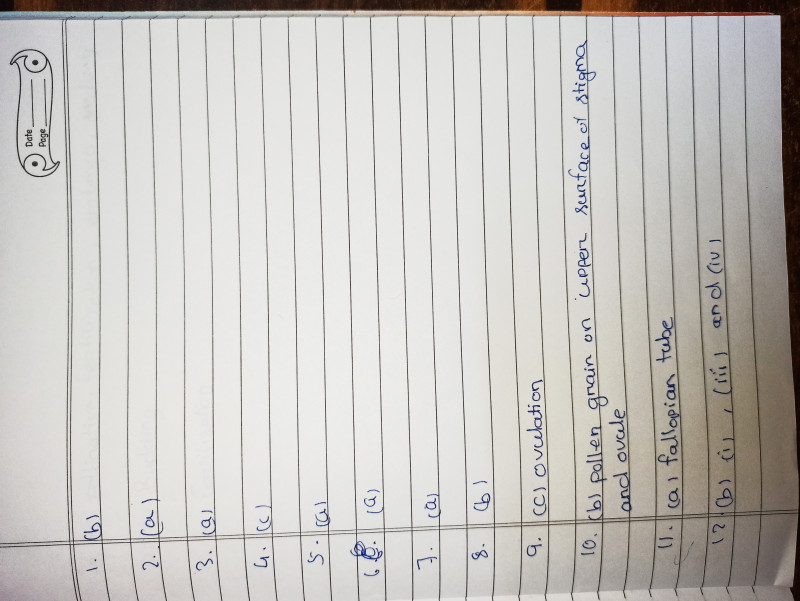 Date
Page
1. (b)
2. (a)
3. (a)
4. (c)
5. (a)
6. (a)
7. (a)
8. (b)
9. (c) ovulation
10. (b) pollen grain on upper surface of stigma
and ovule
11. (a) fallopian tube
12. (b) (i), (iii) and (iv)